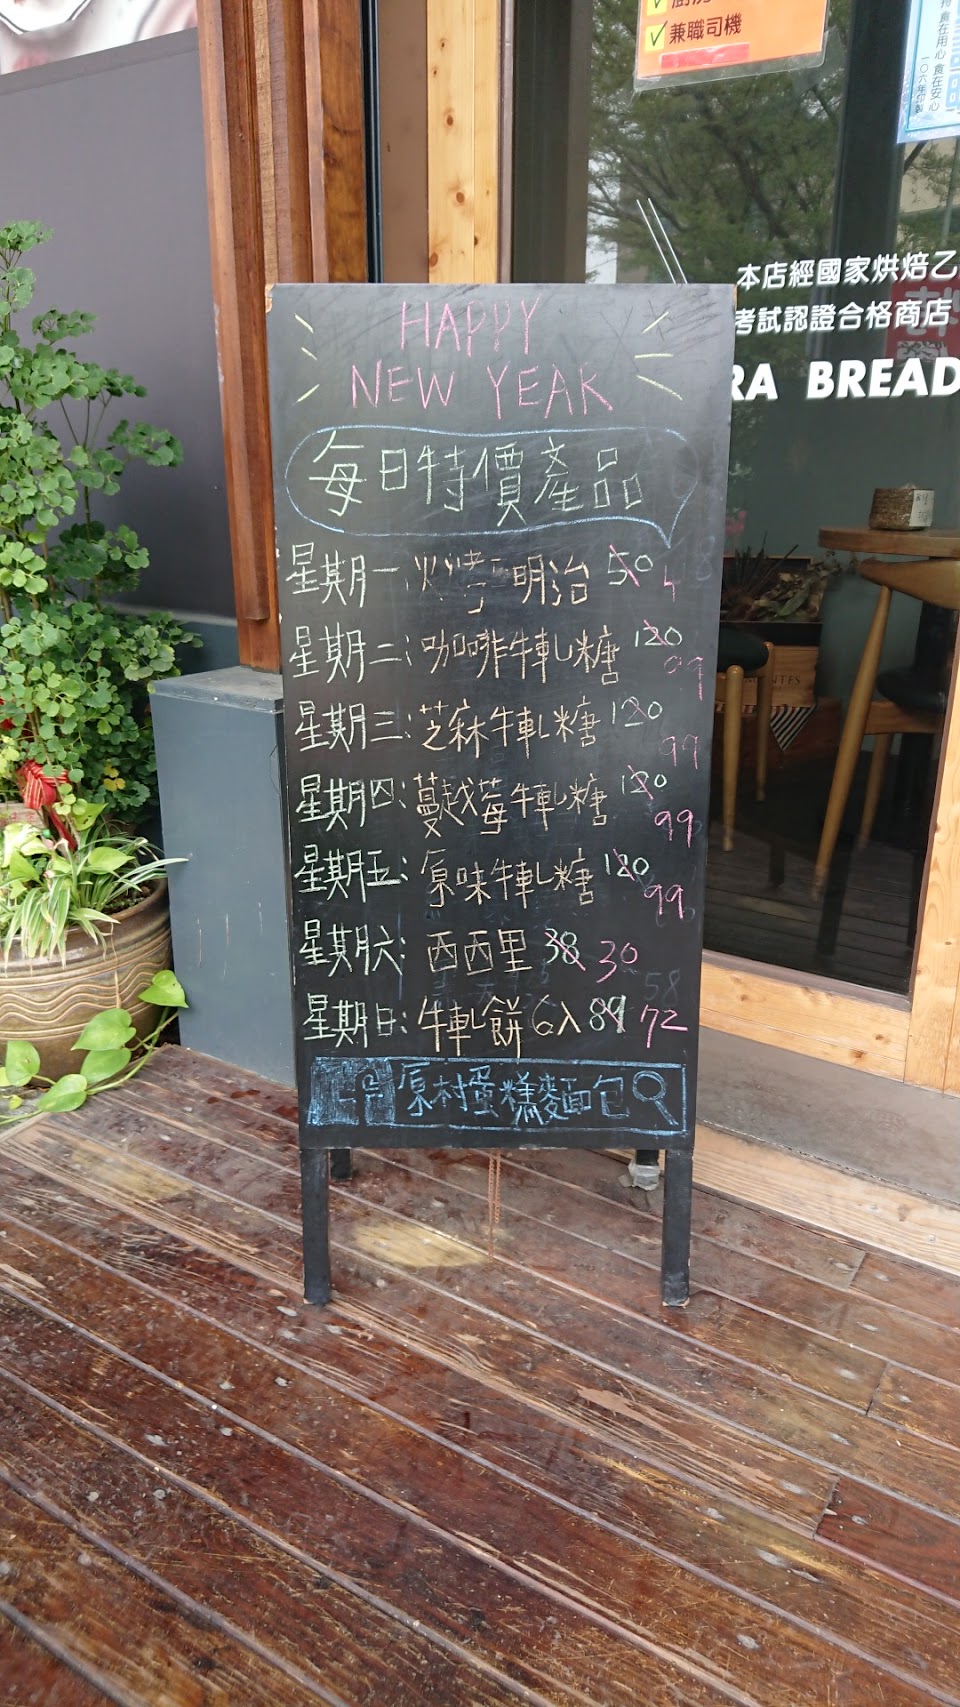 ✓兼職司機
持食在用心 食在安心
一〇六年印製
本店經國家烘焙乙
考試認證合格商店
RA BREAD
HAPPY
NEW YEAR
每日特價產品
星期一:火烤明治 50 4
星期二:咖啡牛軋糖 120 99
星期三:芝麻牛軋糖 120 99
星期四:蔓越莓牛軋糖 120 99
星期五:原味牛軋糖 120 99
星期六:西西里 38 30
星期日:牛軋餅6入 89 72
原村蛋糕麵包